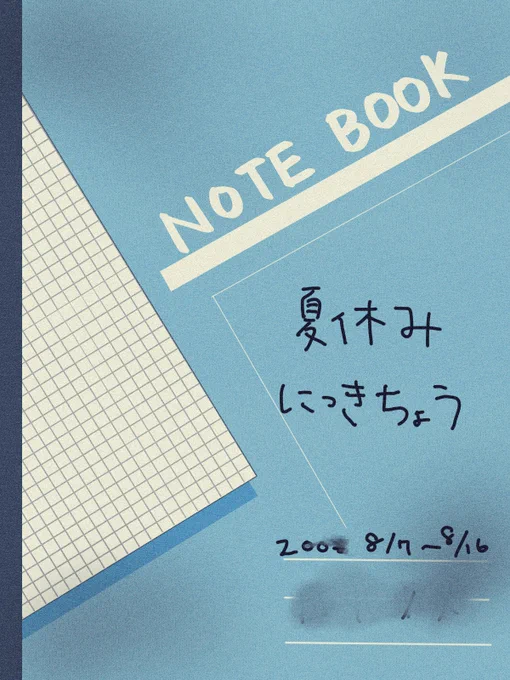 NOTE BOOK
夏休み
にっきちょう
8/7 ~8/16